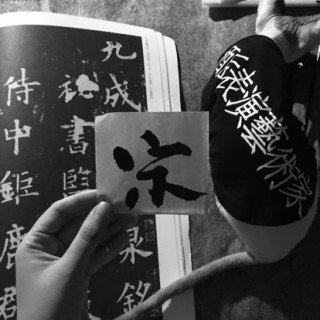 九成
泉銘
祕書監
侍中鉅鹿
宋
表演藝術家